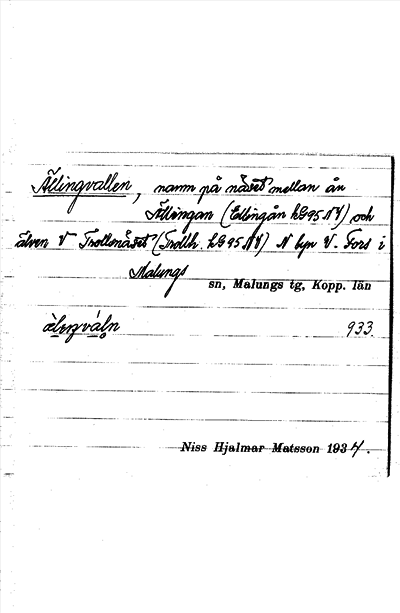 Ällingvallen, namn på näset mellan ån
Ällingan (Ellingån kG95NV) och
älven V Trollnäset (Trollh. kG95NV) N byn V. Fors i
Malungs
sn, Malungs tg, Kopp. län
933
Niss Hjalmar Matsson 1934.